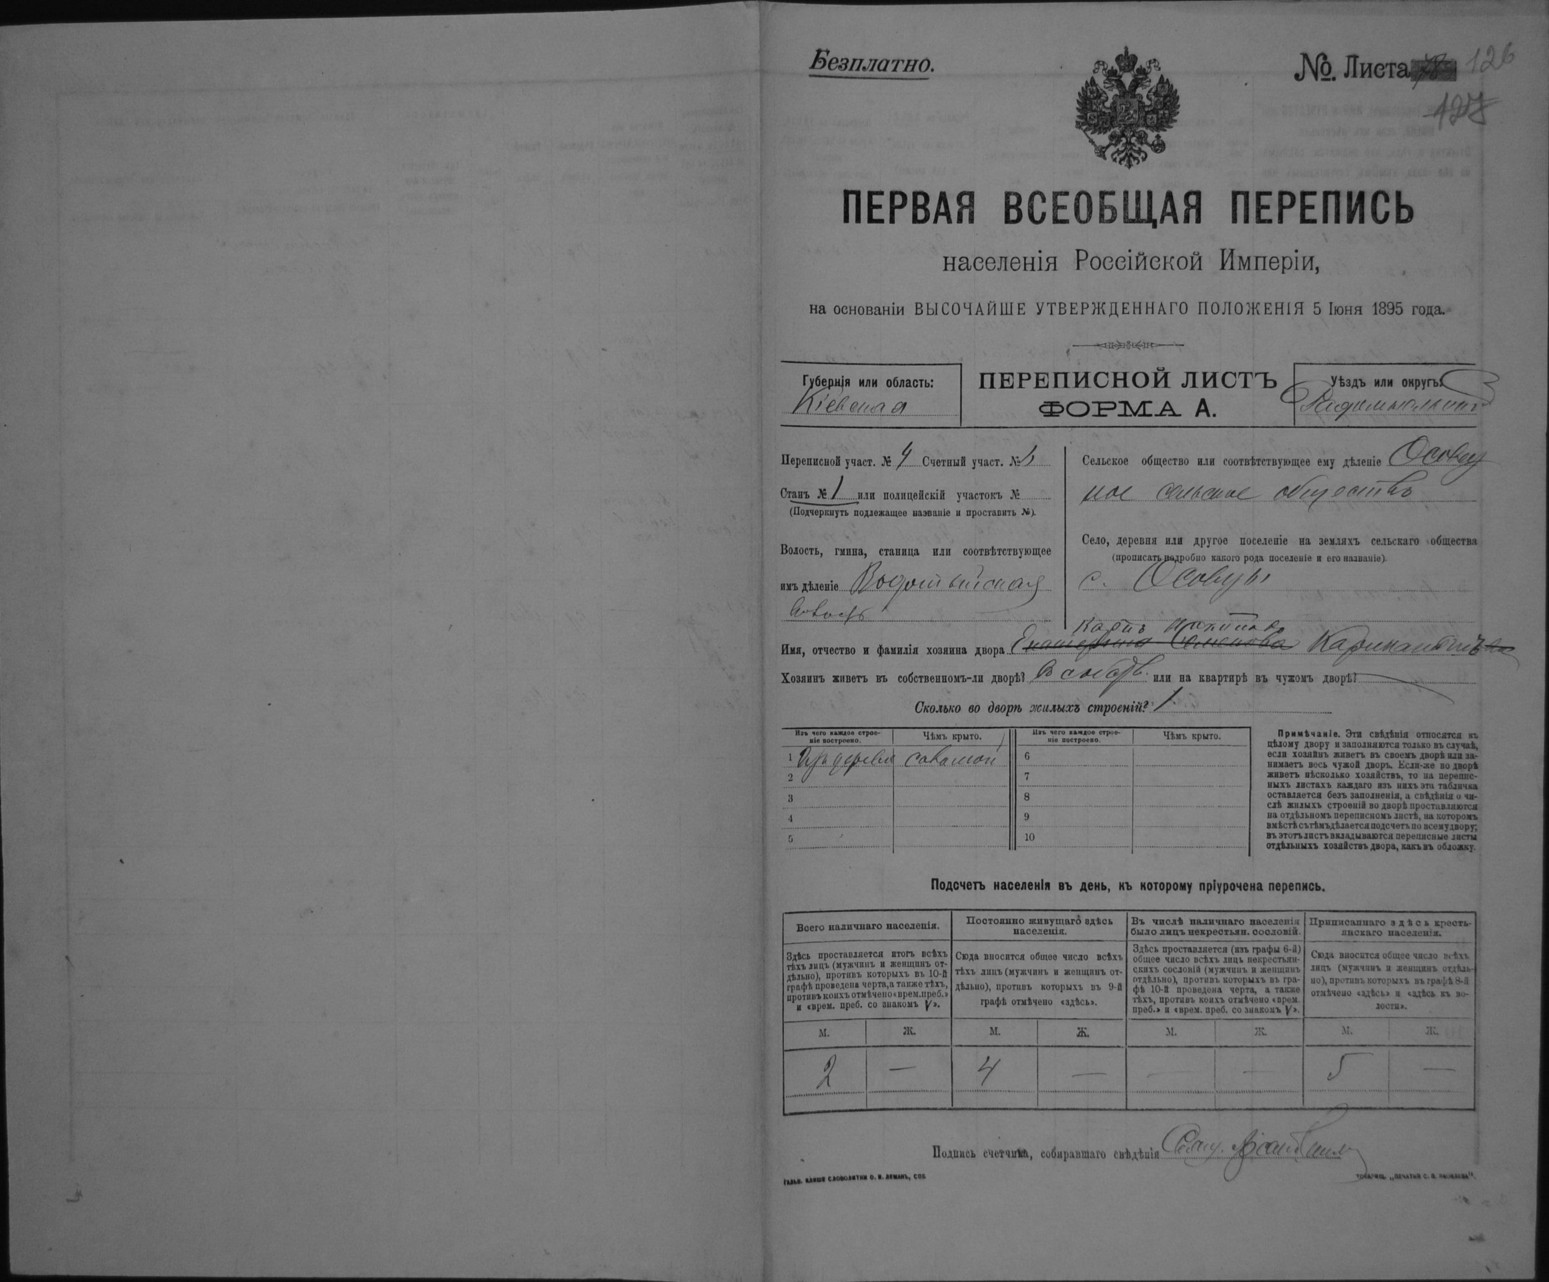 Безплатно.
№. Листа 126
ПЕРВАЯ ВСЕОБЩАЯ ПЕРЕПИСЬ
населенія Россійской Имперіи,
на основаніи ВЫСОЧАЙШЕ УТВЕРЖДЕННАГО ПОЛОЖЕНІЯ 5 Іюня 1895 года.
Губернія или область:
Кіевская
ПЕРЕПИСНОЙ ЛИСТЪ
ФОРМА А.
Уѣздъ или округъ:
Переписной участ. № 4 Счетный участ. №
Станъ № 1 или полицейскій участокъ №
(Подчеркнуть подлежащее названіе и проставить №).
Волость, гмина, станица или соотвѣтствующее
имъ дѣленіе
Сельское общество или соотвѣтствующее ему дѣленіе
ное сельское общество
Село, деревня или другое поселеніе на земляхъ сельскаго общества
(прописать подробно какого рода поселеніе и его названіе).
с. Осовцы
Имя, отчество и фамилія хозяина двора
Хозяинъ живетъ въ собственномъ-ли дворѣ? В собств. или на квартирѣ въ чужомъ дворѣ?
Сколько во дворѣ жилыхъ строеній? 1
Изъ чего каждое строе-
ніе построено.
Чѣмъ крыто.
Изъ чего каждое строе-
ніе построено.
Чѣмъ крыто.
1 Изъ дерева соломой 6
2 7
3 8
4 9
5 10
Примѣчаніе. Эти свѣдѣнія относятся къ
цѣлому двору и заполняются только въ случаѣ,
если хозяинъ живетъ въ своемъ дворѣ или за-
нимаетъ весь чужой дворъ. Если-же во дворѣ
живетъ нѣсколько хозяйствъ, то на перепис-
ныхъ листахъ каждаго изъ нихъ эта табличка
оставляется безъ заполненія, а свѣдѣнія о чи-
слѣ жилыхъ строеній во дворѣ проставляются
на отдѣльномъ переписномъ листѣ, на которомъ
вмѣстѣ съ тѣмъ дѣлается подсчетъ по всему двору;
въ этотъ листъ вкладываются переписные листы
отдѣльныхъ хозяйствъ двора, какъ въ обложку.
Подсчетъ населенія въ день, къ которому пріурочена перепись.
Всего наличнаго населенія.
Здѣсь проставляется итогъ всѣхъ
тѣхъ лицъ (мужчинъ и женщинъ от-
дѣльно), противъ которыхъ въ 10-й
графѣ проведена черта, а также тѣхъ,
противъ коихъ отмѣчено «врем. преб.»
и «врем. преб. со знакомъ V».
Постоянно живущаго здѣсь
населенія.
Сюда вносится общее число всѣхъ
тѣхъ лицъ (мужчинъ и женщинъ от-
дѣльно), противъ которыхъ въ 9-й
графѣ отмѣчено «здѣсь».
Въ числѣ наличнаго населенія
было лицъ некрестьян. сословій.
Здѣсь проставляется (изъ графы 6-й)
общее число всѣхъ лицъ некрестьян-
скихъ сословій (мужчинъ и женщинъ
отдѣльно), противъ которыхъ въ гра-
фѣ 10-й проведена черта, а также
тѣхъ, противъ коихъ отмѣчено «врем.
преб.» и «врем. преб. со знакомъ V».
Приписаннаго здѣсь кресть-
янскаго населенія.
Сюда вносится общее число всѣхъ
лицъ (мужчинъ и женщинъ отдѣль-
но), противъ которыхъ въ графѣ 8-й
отмѣчено «здѣсь» и «здѣсь въ во-
лости».
М. Ж. М. Ж. М. Ж. М. Ж.
2 — 4 — — — 5 —
Подпись счетчика, собиравшаго свѣдѣнія
ГАЛЬВ. КЛИШЕ СЛОВОЛИТНИ О. И. ЛЕМАНЪ, СПБ
ТОВАРИЩ. „ПЕЧАТНЯ С. П. ЯКОВЛЕВА".